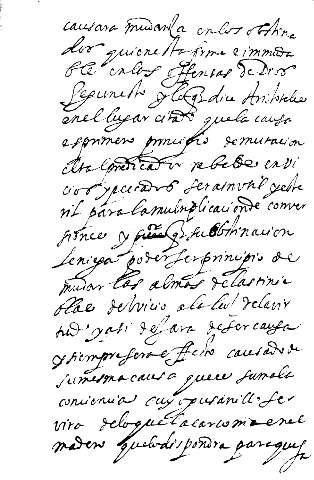 causara mudanza en los obstina
dos quien esta firme e immuda
ble en los offensas de Dios
Segun esto y lo q̃ dice Aristoteles
en el lugar citado que la causa
es primero principio de mutacion
el tal predicador rebelde en vi
cios y peccados sera inutil y este
ril para la multiplicacion de conver
siones y q̃ su obstinacion
le niega poder ser principio de
mudar las almas de las tinie
blas del vicio a la luz de la vir
tud y asi dexara de ser causa
y siempre sera effecto causado de
su mesma causa que es su mala
conciencia cuyo gusanillo ser
vira de lo que la carcoma en el
madero que lo dispondra para que se